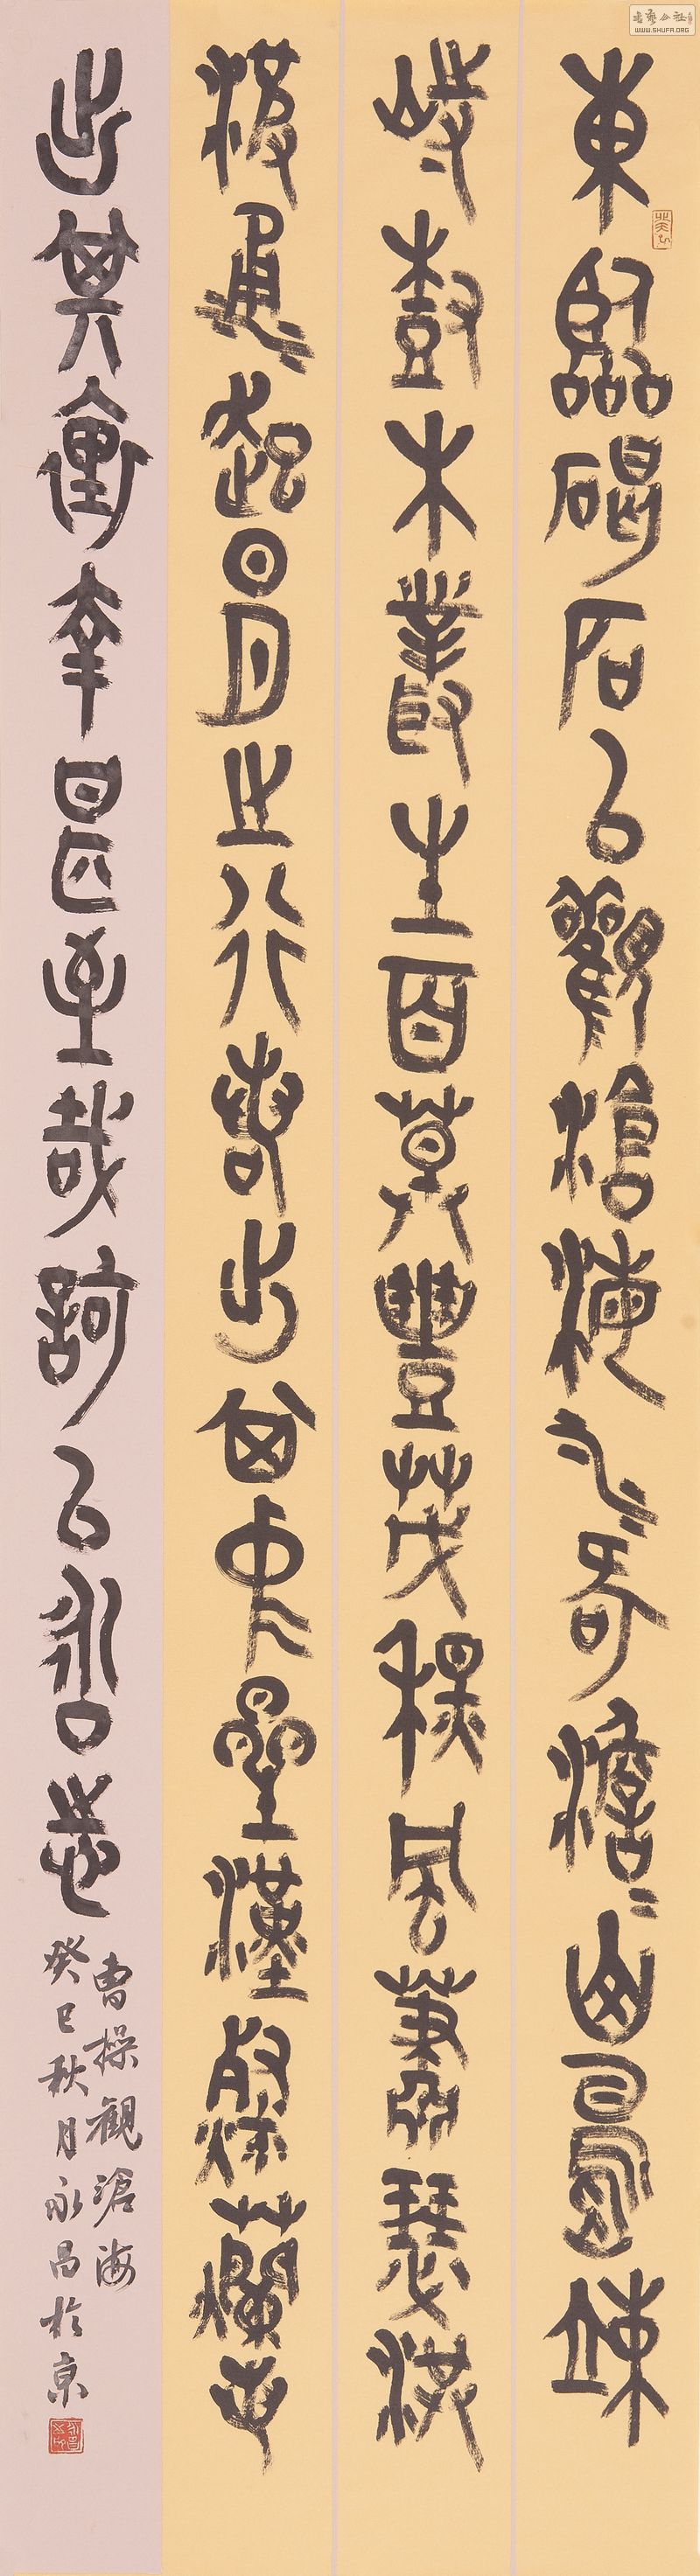 東臨碣石以觀滄海水何澹〻山島竦
峙樹木叢生百草豐茂秋風蕭瑟洪
波涌起日月之行若出其中星漢燦爛若
出其裏幸甚至哉歌以詠志
曹操觀滄海
癸巳秋月永昌於京
書藝公社
WWW.SHUFA.ORG